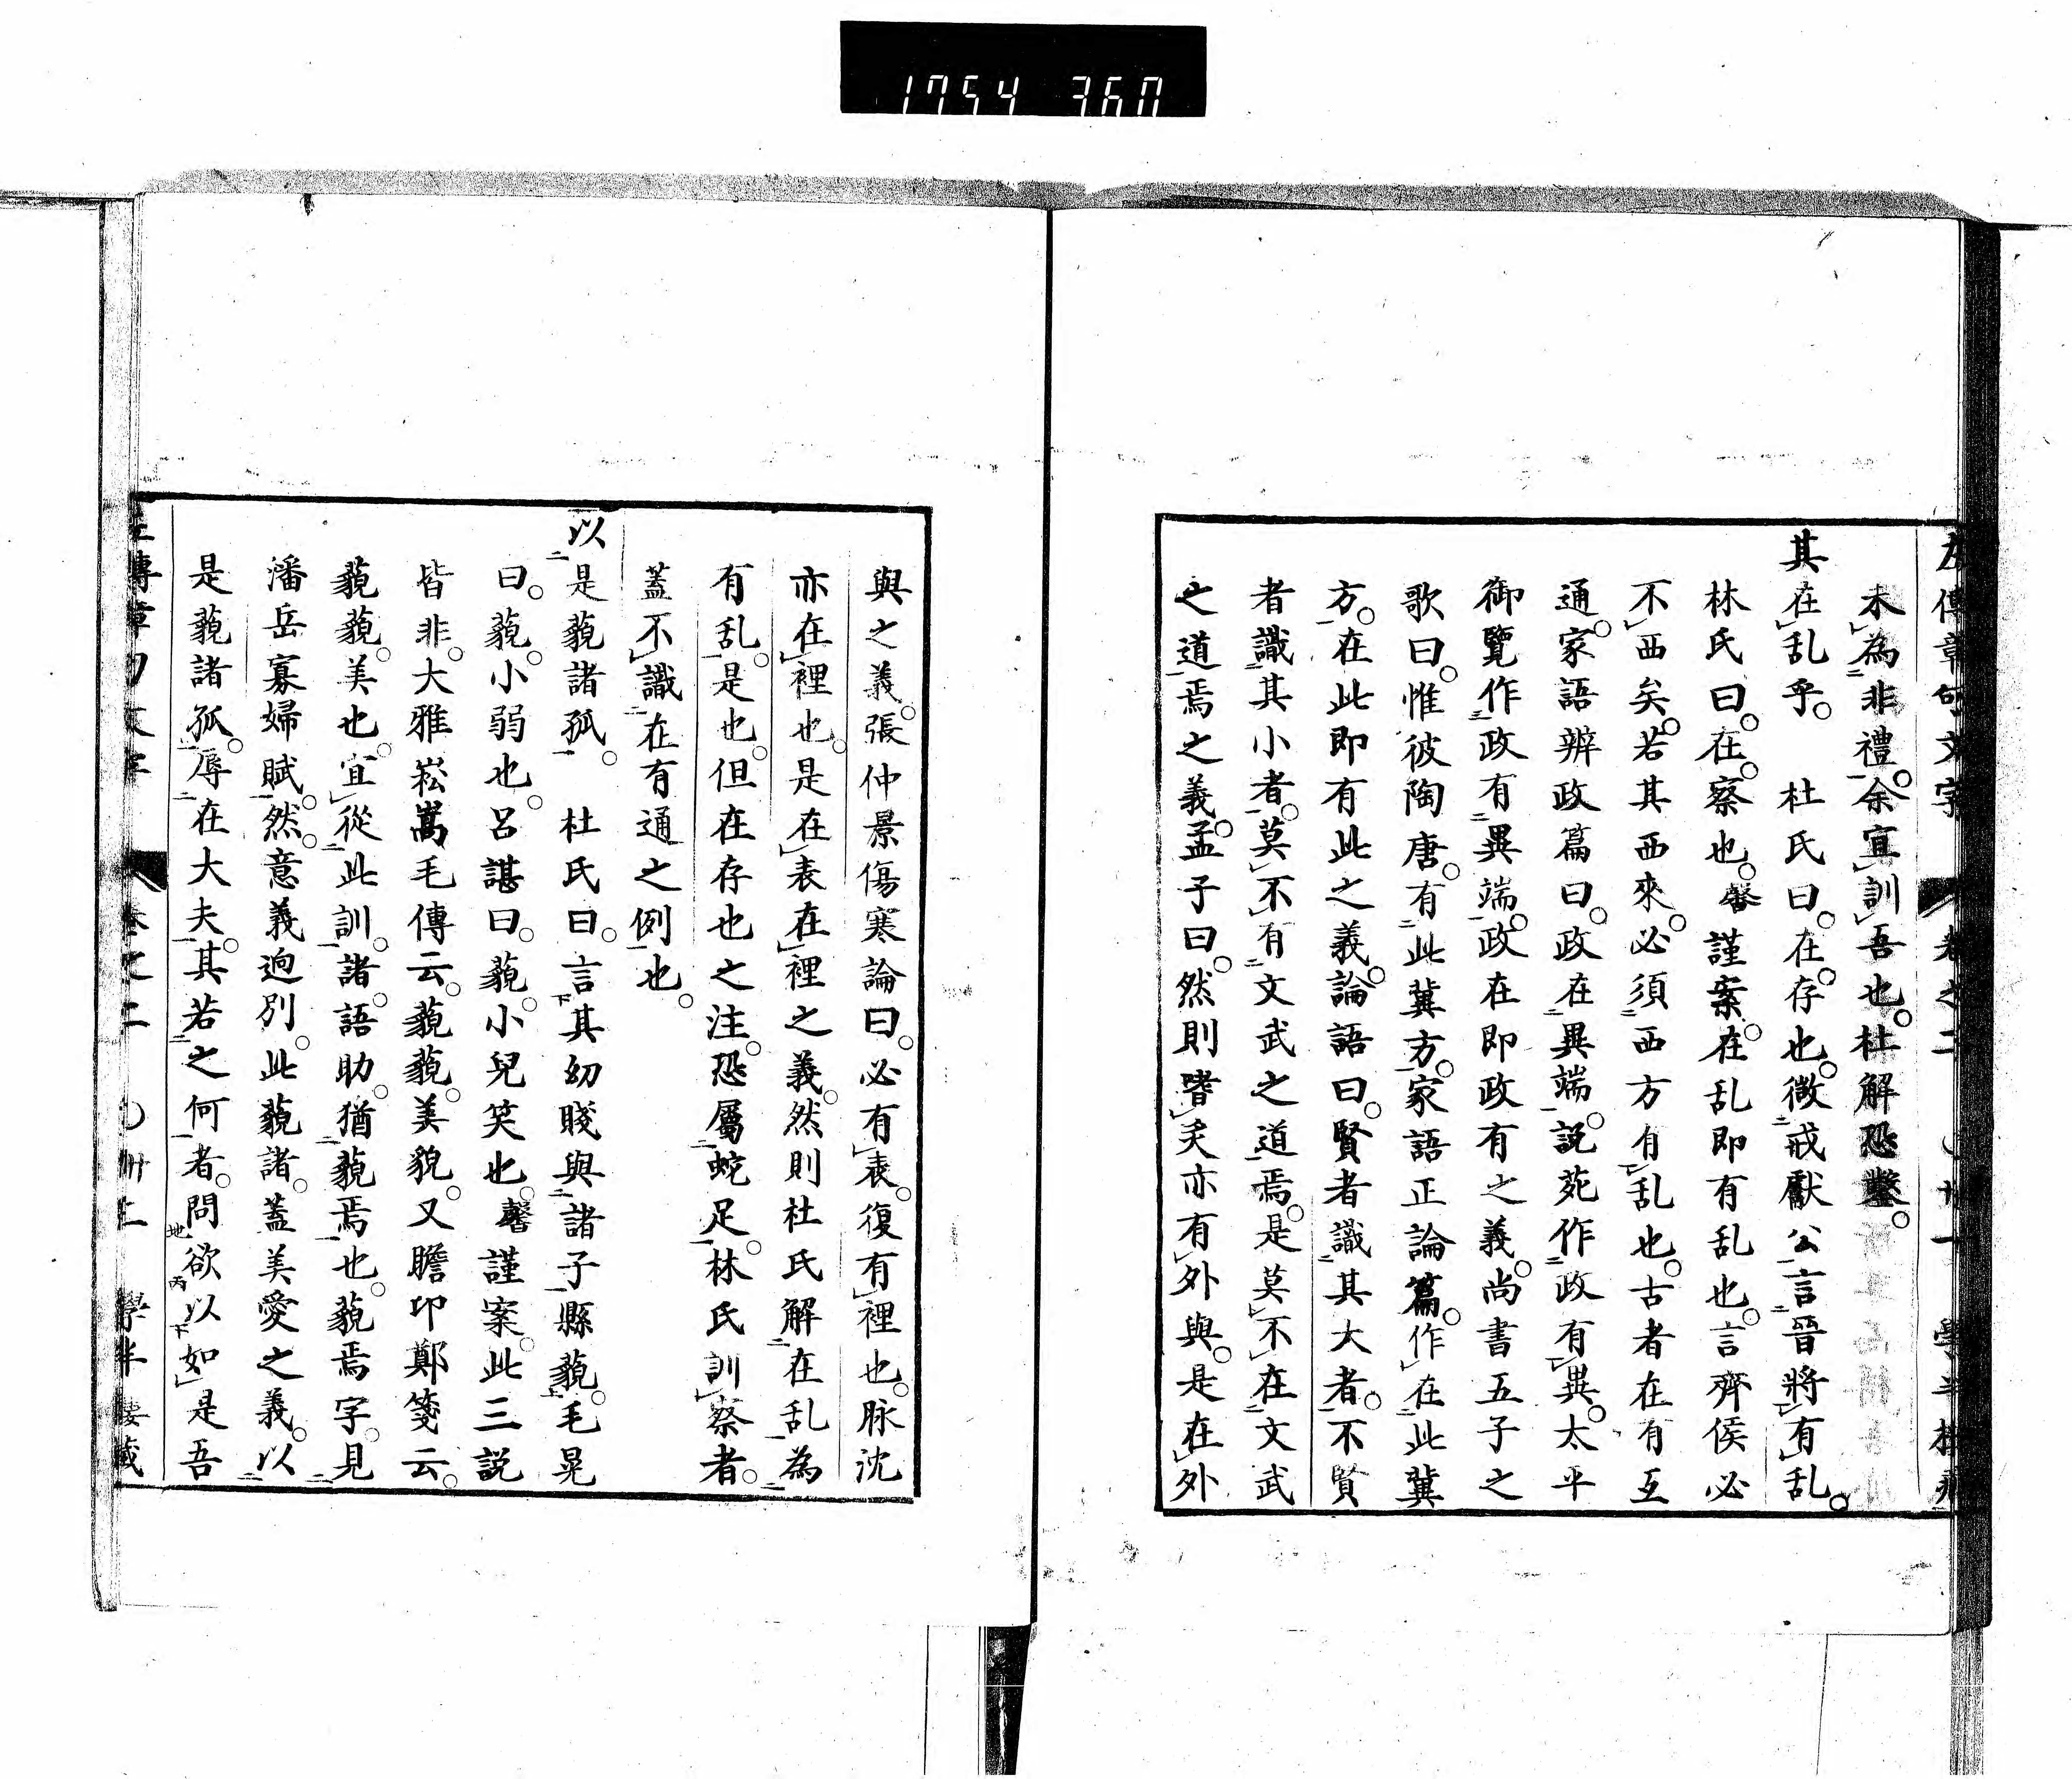 1754 360
左傳章句文字 卷之二 〇廿一 學半樓藏
未為非禮。余宜訓吾也。杜解恐鑿。
其在乱乎。 杜氏曰。在存也。微戒獻公言晉將有乱。
林氏曰。在。察也。馨謹案。在乱即有乱也。言齊侯必
不西矣。若其西來。必須西方有乱也。古者在有互
通。家語辨政篇曰。政在異端。説苑作政有異。太平
御覽作政有異端。政在即政有之義。尚書五子之
歌曰。惟彼陶唐。有此冀方。家語正論篇。作在此冀
方。在此即有此之義。論語曰。賢者識其大者。不賢
者識其小者。莫不有文武之道焉。是莫不在文武
之道焉之義。孟子曰。然則嗜炙亦有外與。是在外
與之義。張仲景傷寒論曰。必有表。復有裡也。脉沈
亦在裡也。是在表在裡之義。然則杜氏解在乱為
有乱。是也。但在存也之注。恐屬蛇足。林氏訓察者。
蓋不識在有通之例也。
以是藐諸孤。 杜氏曰。言其幼賤與諸子縣藐。毛晃
曰。藐。小弱也。呂諶曰。藐。小兒笑也。馨謹案。此三説
皆非。大雅崧嵩毛傳云。藐藐。美貌。又瞻卬鄭箋云。
藐藐。美也。宜從此訓。諸。語助。猶藐焉也。藐焉字。見
潘岳寡婦賦。然。意義迥別。此藐諸。蓋美愛之義。以
是藐諸孤。辱在大夫。其若之何者。問欲以如是吾
左傳章句文字 卷之二 〇卅二 學半樓藏